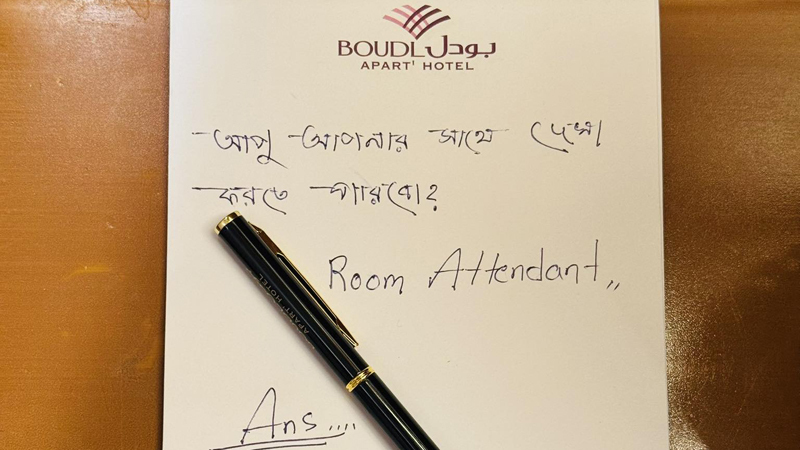 BOUDL بودل
APART' HOTEL
আপু আপনার সাথে দেখা
করতে পারবো?
Room Attendant,,
APART' HOTEL
Ans....